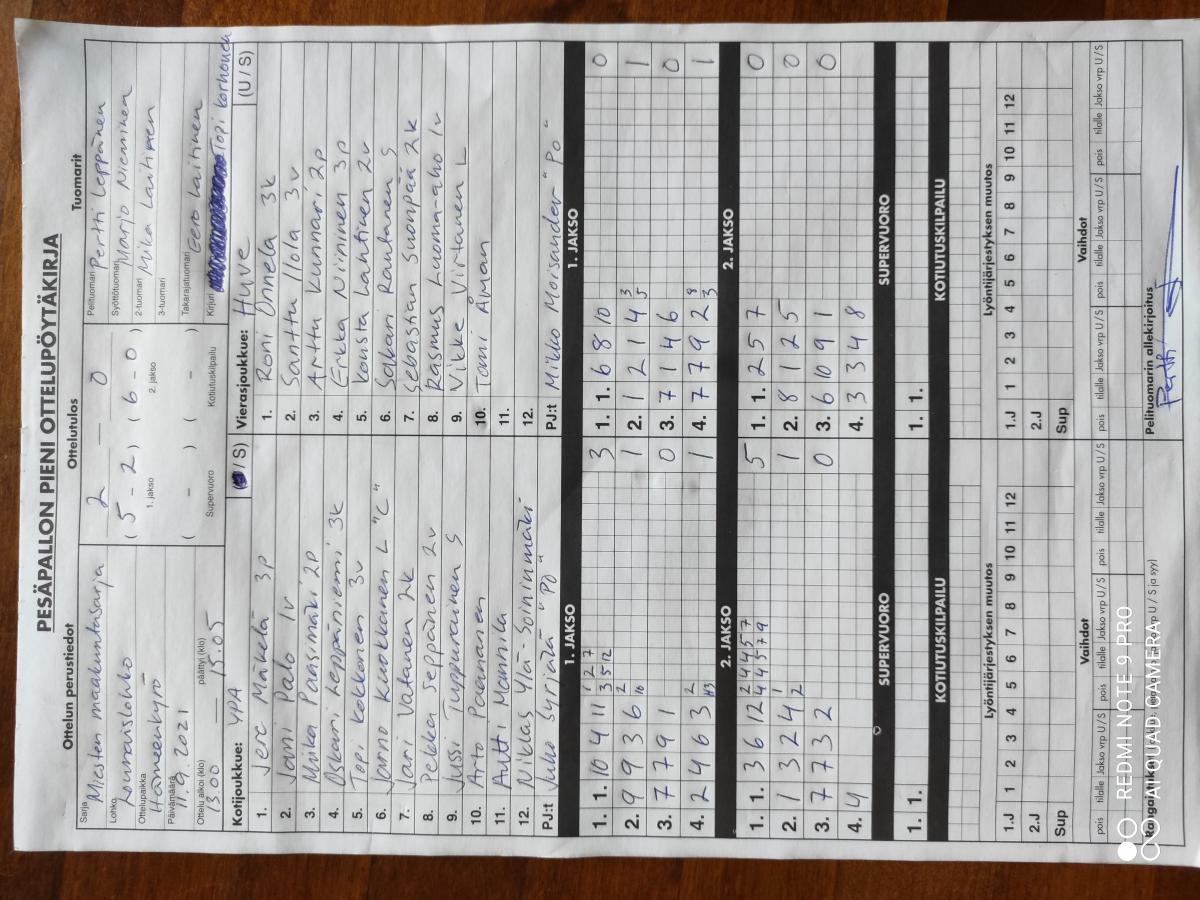 PESÄPALLON PIENI OTTELUPÖYTÄKIRJA
Ottelun perustiedot
Ottelutulos
Tuomarit
Sarja Miesten maakuntasarja
Lohko Lounaislohko
Ottelupaikka Hämeenkyrö
Päivämäärä 11.9.2021
Ottelu alkoi (klo) 13.00 päättyi (klo) 15.05
2 — 0
( 5 - 2 ) ( 6 - 0 )
1. jakso 2. jakso
( - ) ( - )
Supervuoro Kotiutuskilpailu
Pelituomari Pertti Leppänen
Syöttötuomari Marjo Nieminen
2-tuomari Mika Laitinen
3-tuomari
Takarajatuomari Eero Laitinen
Kirjuri Topi Korhonen
Kotijoukkue: YPA (U / S)
1. Jere Mäkelä 3p
2. Jani Palo 1v
3. Miika Paasimäki 2p
4. Oskari Leppäniemi 3k
5. Topi Kokkonen 3v
6. Janno Kuokkanen L "C"
7. Jani Vatanen 2k
8. Pekka Seppänen 2v
9. Jussi Tuppurainen S
10. Arto Paananen
11. Antti Mannila
12. Niklas Ylä-Soininmäki
PJ:t Juho Syrjälä "PO"
Vierasjoukkue: HuVe (U / S)
1. Roni Onnela 3k
2. Santtu Ilola 3v
3. Arttu Kunnari 2p
4. Erkka Niininen 3p
5. Konsta Lahtinen 2v
6. Sakari Rautanen S
7. Sebastian Suonpää 2k
8. Rasmus Luoma-aho 1v
9. Vikke Virtanen L
10. Tomi Åman
11.
12.
PJ:t Mikko Moisander "PO"
1. JAKSO 1. JAKSO
1. 1. 10 4 11 3 5 12 1 2 7 3
2. 9 9 3 6 10 2 1
3. 7 7 9 1 0
4. 2 4 6 3 2 1
1. 1. 6 8 10 0
2. 1 2 1 4 5 3 1
3. 7 1 4 6 0
4. 7 7 9 2 3 8 1
2. JAKSO 2. JAKSO
1. 1. 3 6 12 4 4 5 7 9 2 4 4 5 7 5
2. 1 3 2 4 2 1 1
3. 7 7 3 2 0
4. 4
1. 1. 2 5 7 0
2. 8 1 2 5 0
3. 6 10 9 1 0
4. 3 3 4 8
SUPERVUORO SUPERVUORO
1. 1. 1. 1.
KOTIUTUSKILPAILU KOTIUTUSKILPAILU
Lyöntijärjestyksen muutos Lyöntijärjestyksen muutos
1.J 1 2 3 4 5 6 7 8 9 10 11 12 1.J 1 2 3 4 5 6 7 8 9 10 11 12
2.J 2.J
Sup Sup
Vaihdot Vaihdot
pois tilalle Jakso vrp U / S pois tilalle Jakso vrp U / S pois tilalle Jakso vrp U / S pois tilalle Jakso vrp U / S pois tilalle Jakso vrp U / S pois tilalle Jakso vrp U / S
Pelituomarin allekirjoitus
REDMI NOTE 9 PRO
AI QUAD CAMERA